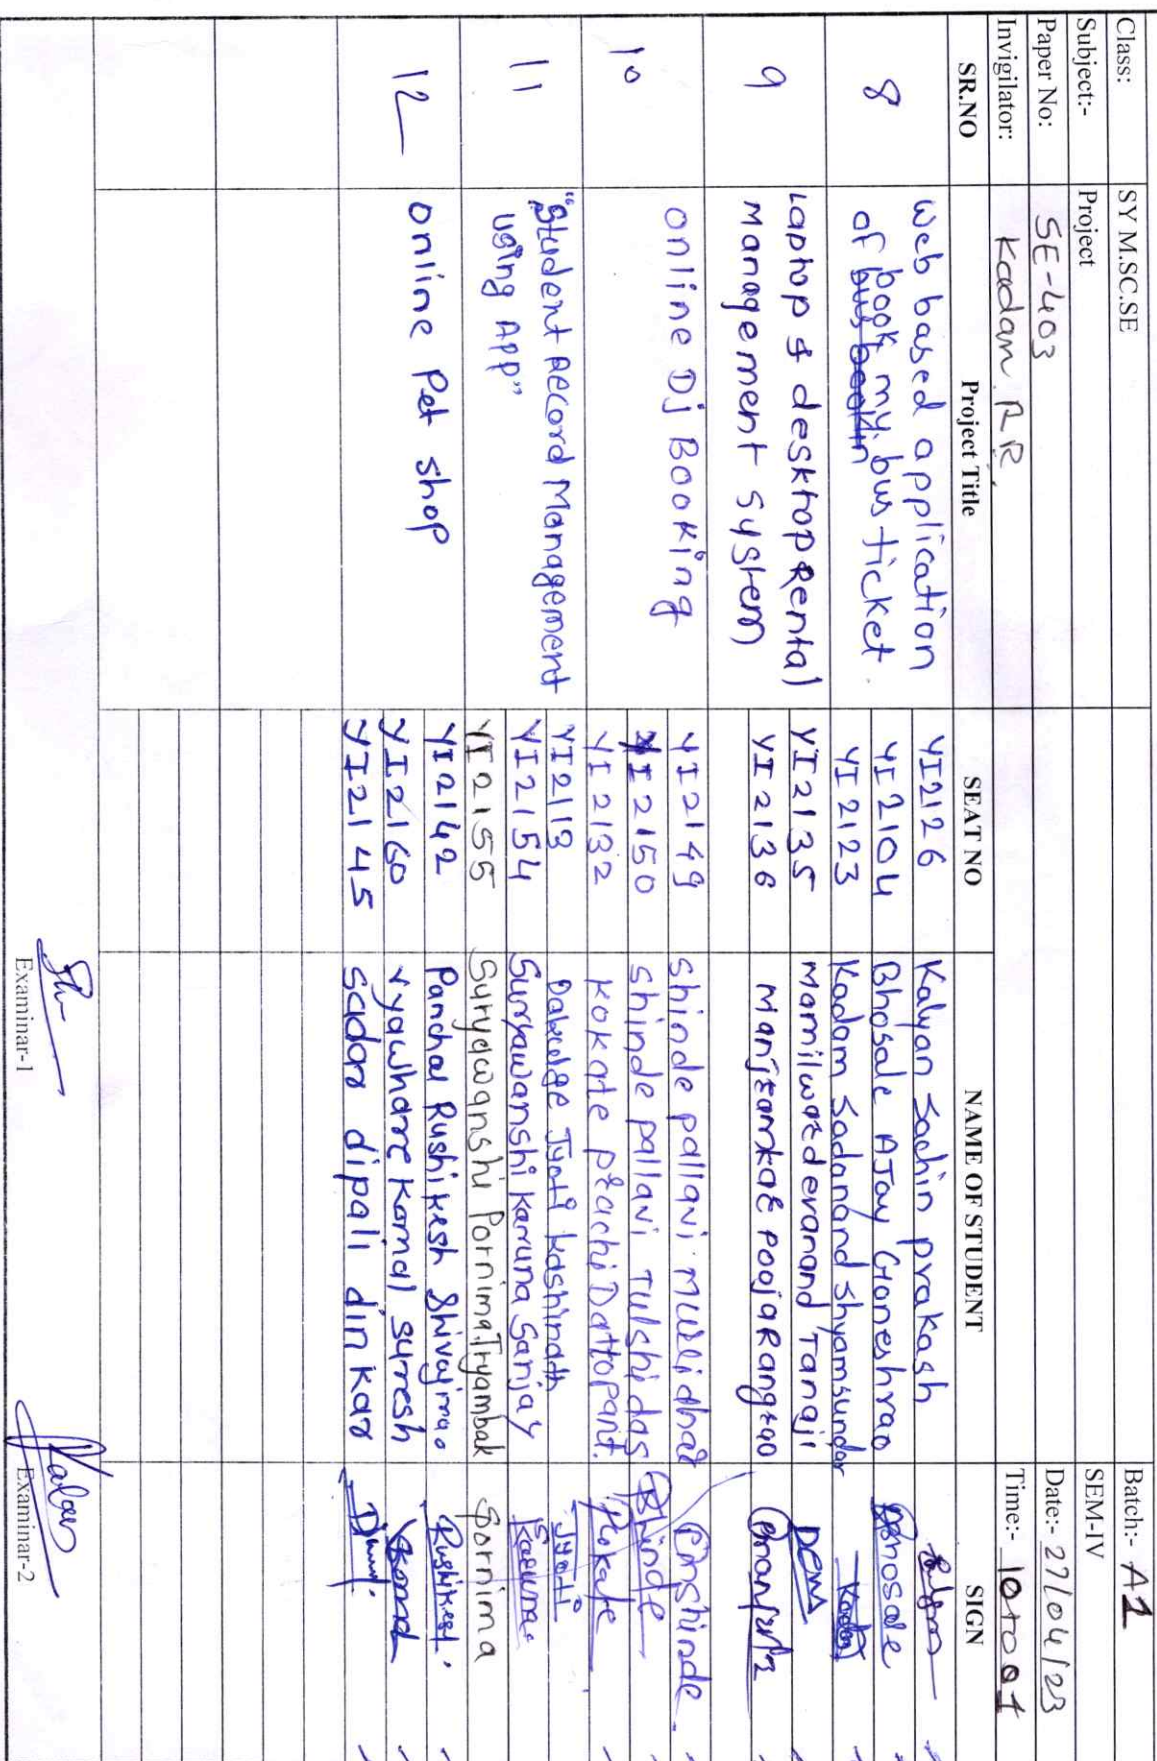 Class: SY M.SC.SE Batch:- A1
Subject:- Project SEM-IV
Paper No: SE-403 Date:- 27/04/23
Invigilator: Kadam R.R. Time:- 10 to 01
SR.NO Project Title SEAT NO NAME OF STUDENT SIGN
8 Web based application YI2126 Kalyan Sachin prakash
of book my bus ticket. YI2104 Bhosale AJay Ganeshrao Bhosale
YI2123 Kadam Sadanand Shyamsundar Kadam
9 Laptop & desktop Rental YI2135 Mamilwar devanand Tanaji DCM
Management System YI2136 Manjramkar Pooja Rangrao
10 online Dj Booking YI2149 shinde pallavi murlidhar Pmshinde.
YI2150 shinde pallavi Tulshidas Shinde
YI2132 Kokate prachi Dattopant. Pkokate
11 "Student Record Management YI2113 Jyoti Kashinath Jyoti
using App" YI2154 Suryawanshi Karuna Sanjay Karuna
YI2155 Suryawanshi Pornima Tryambak Pornima
12 online Pet shop YI2142 Panchal Rushikesh Shivajirao Rushikesh
YI2160 vyawhare Komal suresh Komal
YI2145 Sadar dipali dinkar
Examinar-1 Examinar-2